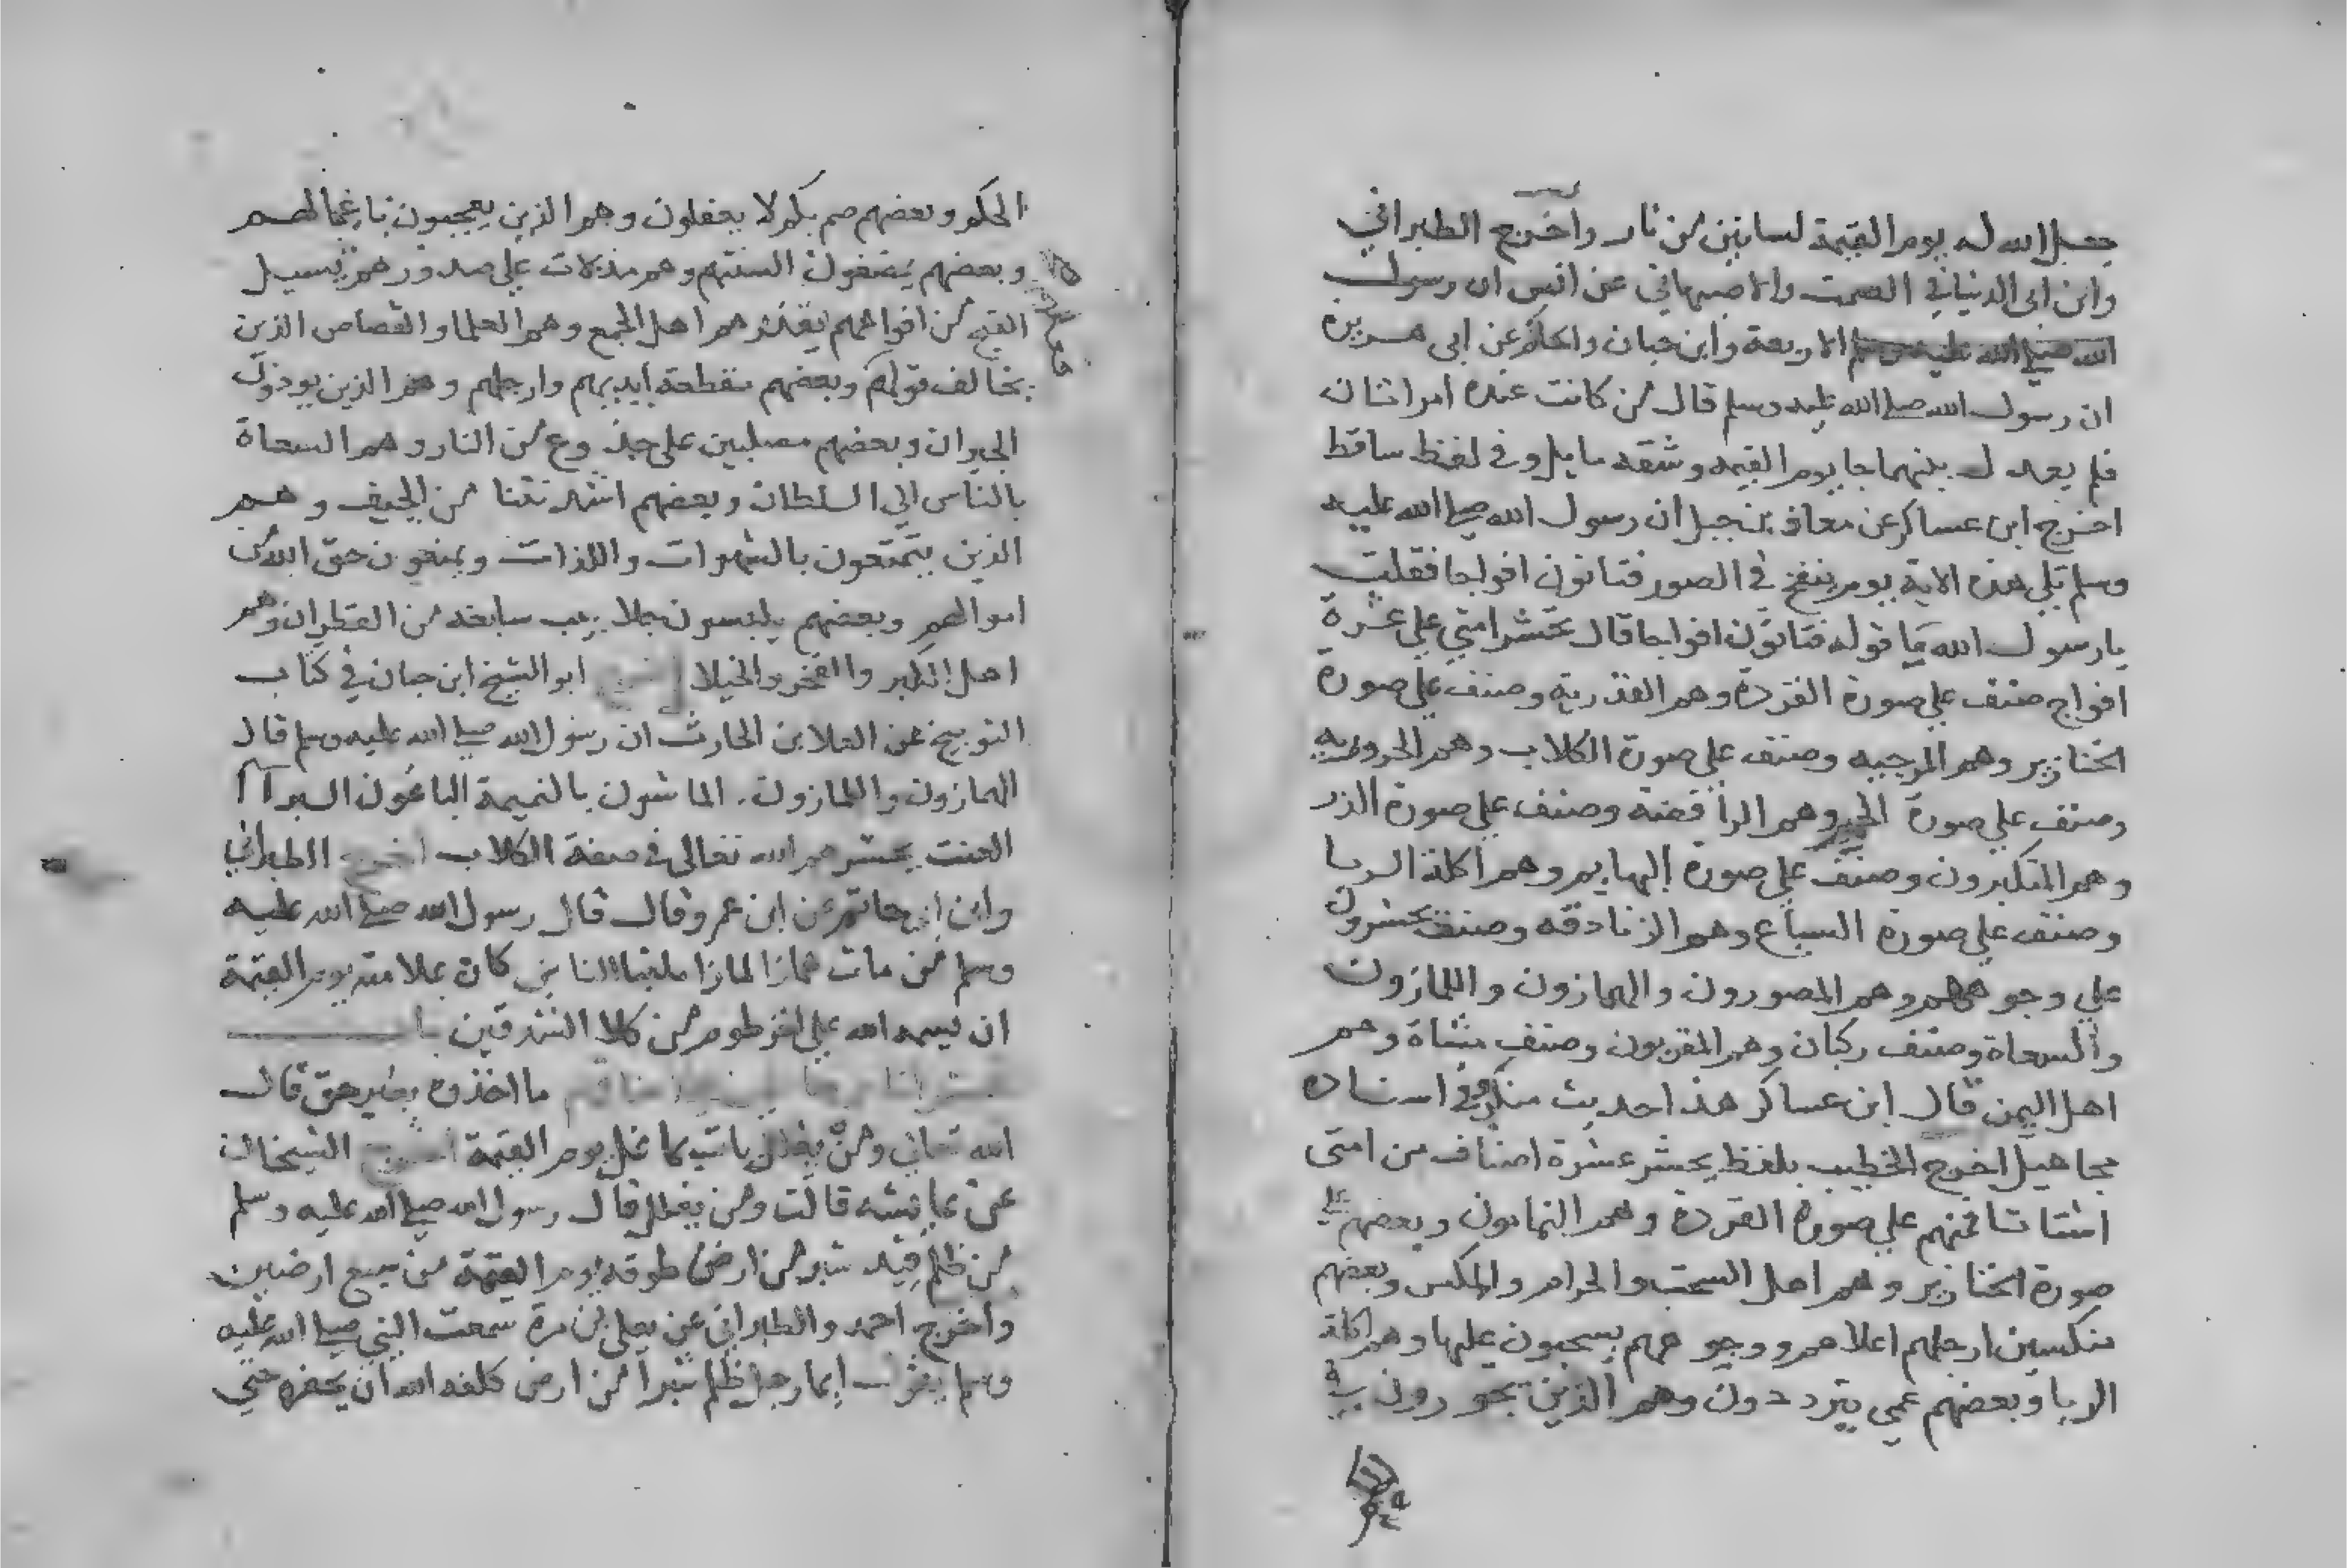 جعل الله له يوم القيمة لسانين من نار واخرج الطبراني
وابن ابي الدنيا في الصمت والاصبهاني عن انس ان رسول
الله صلي الله عليه وسلم الاربعة وابن حبان والحاكم عن ابي هريرة
ان رسول الله صلي الله عليه وسلم قال من كانت عنده امراتان
فلم يعدل بينهما جا يوم القيمه وشقه مايل وفي لفظ ساقط
اخرج ابن عساكر عن معاذ بن جبل ان رسول الله صلي الله عليه
وسلم تلي هذه الاية يوم ينفخ في الصور فتاتون افواجا فقلت
يا رسول الله ما قوله فتاتون افواجا قال تحشر امتي علي عشرة
افواج صنف علي صورة القردة وهم القدرية وصنف علي صورة
الخنازير وهم المرجيه وصنف علي صورة الكلاب وهم الحرورية
وصنف علي صورة الحمير وهم الرافضة وصنف علي صورة الذر
وهم المتكبرون وصنف علي صورة البهايم وهم اكلة الربا
وصنف علي صورة السباع وهم الزنادقه وصنف يحشرون
علي وجوههم وهم المصورون والهمازون واللمازون
والسعاة وصنف ركبان وهم المقربون وصنف مشاة وهم
اهل اليمن قال ابن عساكر هذا حديث منكر وفي اسناده
مجاهيل اخرج الخطيب بلفظ يحشر عشرة اصناف من امتى
اشتاتا فمنهم علي صورة القردة وهم النمامون وبعضهم علي
صورة الخنازير وهم اهل السحت والحرام والمكس وبعضهم
منكسين ارجلهم اعلاهم ووجوههم يسحبون عليها وهم اكلة
الربا وبعضهم عمي يترددون وهم الذين يجورون في
الحكم وبعضهم صم بكم لا يعقلون وهم الذين يعجبون باعمالهم
وبعضهم يمضغون السنتهم وهم مدلات علي صدورهم يسيل
القيح من افواههم يقذرهم اهل الجمع وهم العلما والقصاص الذين
يخالف قولهم وبعضهم مقطعة ايديهم وارجلهم وهم الذين يوذون
الجيران وبعضهم مصلبين على جذوع من النار وهم السعاة
بالناس الي السلطان وبعضهم اشد نتنا من الجيف وهم
الذين يتمتعون بالشهوات واللذات ويمنعون حق الله من
اموالهم وبعضهم يلبسون جلابيب سابغه من القطران وهم
اهل الكبر والفخر والخيلا اخرج ابو الشيخ ابن حبان في كتاب
التوبيخ عن العلا بن الحارث ان رسول الله صلي الله عليه وسلم قال
الهمازون واللمازون الماشون بالنميمة الباغون البرآ
العنت يحشرهم الله تعالى في صفة الكلاب اخرج الطبراني
وابن ابي حاتم عن ابن عمرو قال قال رسول الله صلي الله عليه
وسلم من مات همازا لمازا ملقبا للناس كان علامته يوم القيمة
ان يسمه الله علي الخرطوم من كلا الشدقين باب
ما اخذوه بغير حق قال
الله تعالي ومن يغلل يات بما غل يوم القيمة اخرج الشيخان
عن عايشه قالت ومن يغلل قال رسول الله صلي الله عليه وسلم
من ظلم قيد شبر من ارض طوقه يوم القيمة من سبع ارضين
واخرج احمد والطبراني عن يعلي بن مرة سمعت النبي صلي الله عليه
وسلم يقول ايما رجل ظلم شبرا من ارض كلفه الله ان يحفره حتي